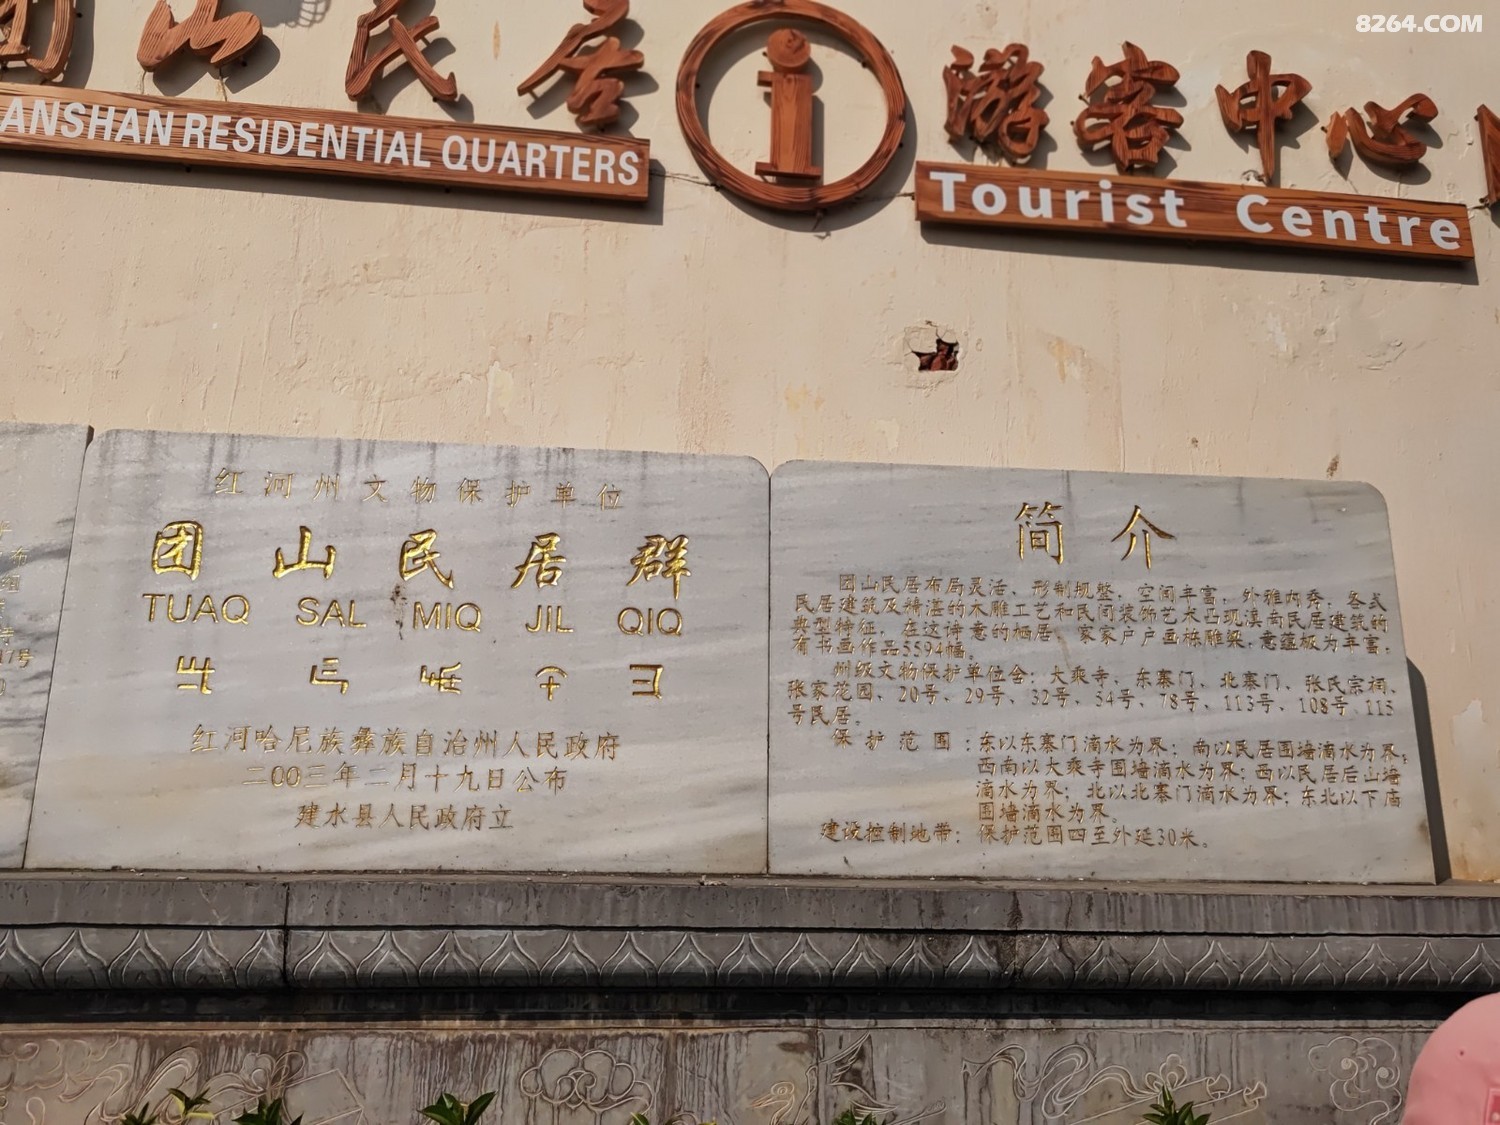 8264.COM
团山民居 i 游客中心
ANSHAN RESIDENTIAL QUARTERS Tourist Centre
红河州文物保护单位
团山民居群
TUAQ SAL MIQ JIL QIQ
红河哈尼族彝族自治州人民政府
二00三年二月十九日公布
建水县人民政府立
简介
团山民居布局灵活、形制规整,空间丰富,外雅内秀,各式
民居建筑及精湛的木雕工艺和民间装饰艺术凸现滇南民居建筑的
典型特征,在这诗意的栖居,家家户户画栋雕梁,意蕴极为丰富:
有书画作品5594幅。
州级文物保护单位含:大乘寺、东寨门、北寨门、张氏宗祠、
张家花园、20号、29号、32号、54号、78号、113号、108号、115
号民居。
保护范围:东以东寨门滴水为界;南以民居围墙滴水为界;
西南以大乘寺围墙滴水为界;西以民居后山墙
滴水为界;北以北寨门滴水为界;东北以下庙
围墙滴水为界。
建设控制地带:保护范围四至外延30米。